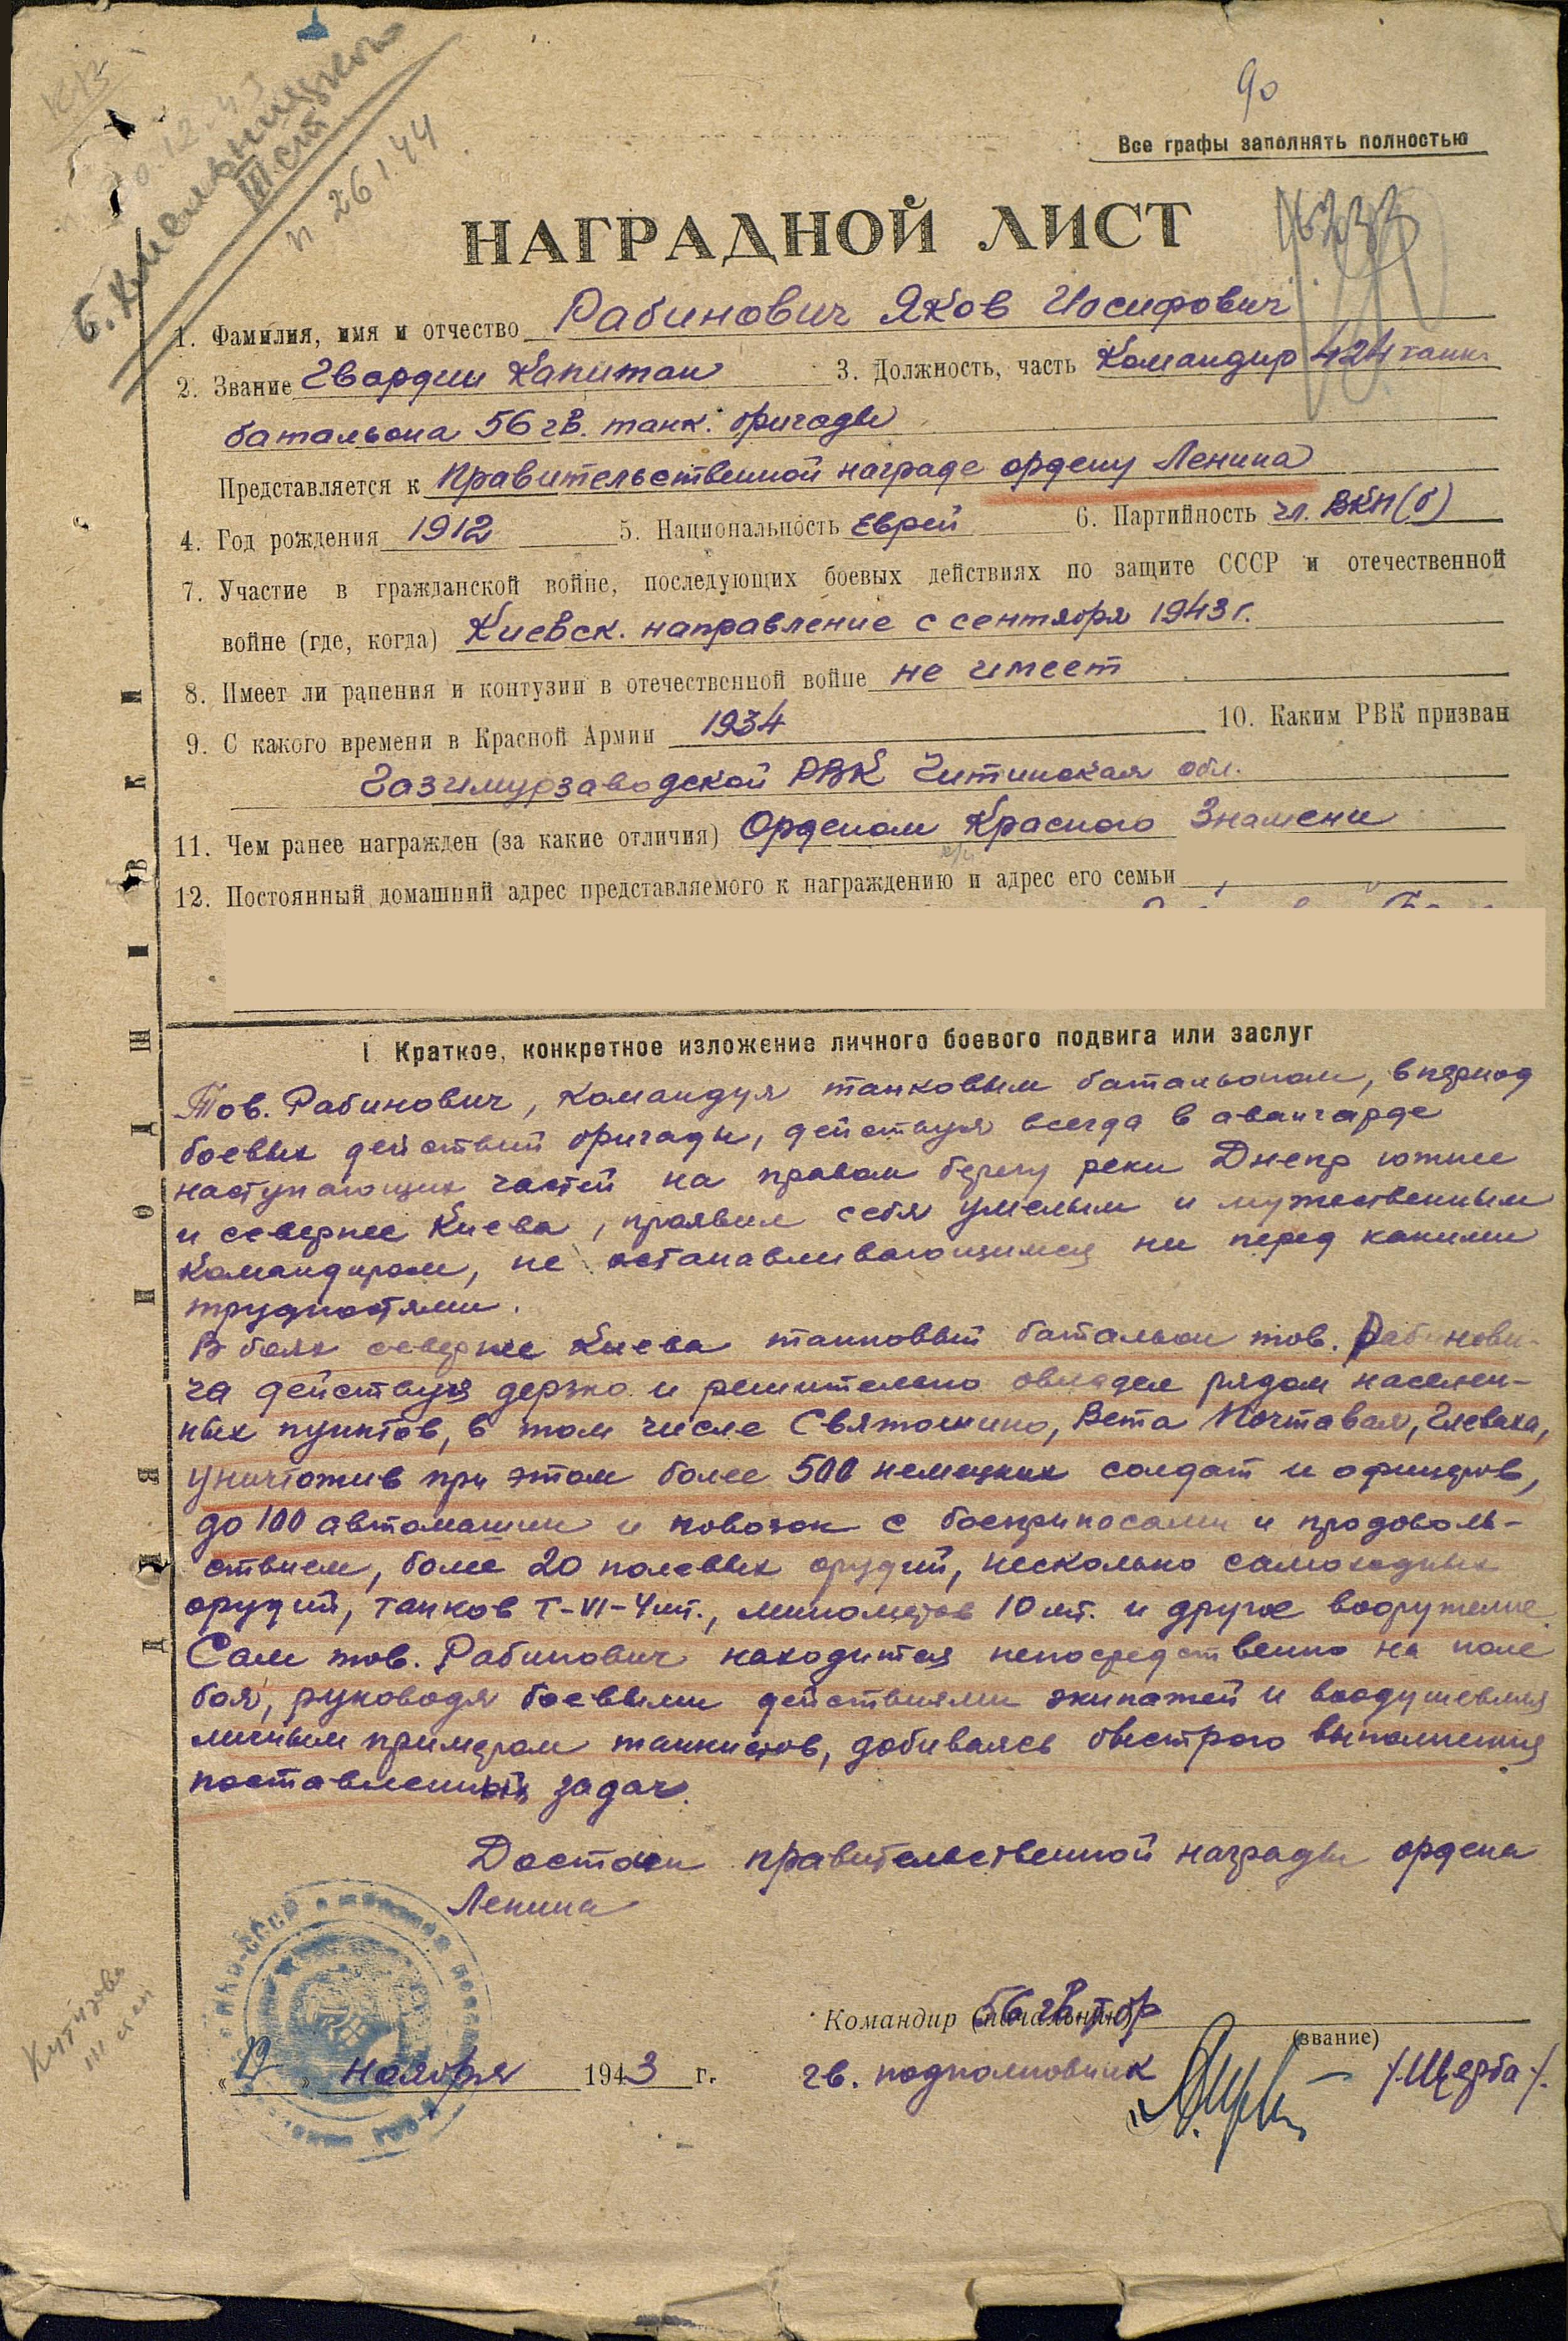 90
Все графы заполнять полностью
Б. Хмельницкого
III ст
п 26 1.44
НАГРАДНОЙ ЛИСТ
1. Фамилия, имя и отчество Рабинович Яков Иосифович
2. Звание Гвардии Капитан 3. Должность, часть Командир 424 танк.
батальона 56 гв. танк. бригады
Представляется к правительственной награде ордену Ленина
4. Год рождения 1912 5. Национальность Еврей 6. Партийность чл. ВКП(б)
7. Участие в гражданской войне, последующих боевых действиях по защите СССР и отечественной
войне (где, когда) Киевск. направление с сентября 1943 г.
8. Имеет ли ранения и контузии в отечественной войне не имеет
9. С какого времени в Красной Армии 1934 10. Каким РВК призван
Газимурзаводской РВК Читинская обл.
11. Чем ранее награжден (за какие отличия) Орденом Красного Знамени
12. Постоянный домашний адрес представляемого к награждению и адрес его семьи
I. Краткое, конкретное изложение личного боевого подвига или заслуг
Тов. Рабинович, командуя танковым батальоном, в период
боевых действий бригады, действуя всегда в авангарде
наступающих частей на правом берегу реки Днепр южнее
и севернее Киева, проявил себя умелым и мужественным
командиром, не останавливающимся ни перед какими
трудностями.
В боях севернее Киева танковый батальон тов. Рабинови-
ча действуя дерзко и решительно овладел рядом населен-
ных пунктов, в том числе Святошино, Вета Почтовая, Глеваха,
уничтожив при этом более 500 немецких солдат и офицеров,
до 100 автомашин и повозок с боеприпасами и продоволь-
ствием, более 20 полевых орудий, несколько самоходных
орудий, танков Т-VI-4 шт., минометов 10 шт. и другое вооружение.
Сам тов. Рабинович находится непосредственно на поле
боя, руководя боевыми действиями экипажей и воодушевляя
личным примером танкистов, добиваясь быстрого выполнения
поставленных задач.
Достоин правительственной награды ордена
Ленина
Командир (начальник) 56 гв тбр
(звание)
ноября 1943 г. гв. подполковник /Щерба/.
Кутузова
III степ
ДЛЯ ПОДШИВКИ